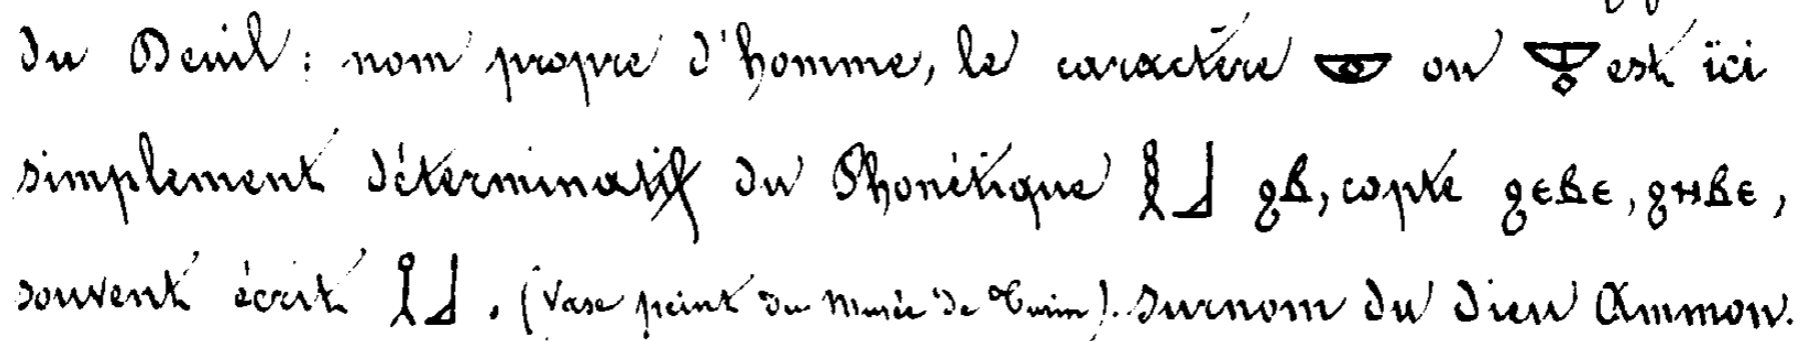 du Deuil : nom propre d'homme, le caractère 𓎱 ou 𓎱 est ici
simplement déterminatif du Phonétique 𓎛𓃀 ϩⲃ, copte ϩⲉⲃⲉ, ϩⲏⲃⲉ,
souvent écrit 𓎛𓃀. (Vase peint du Musée de Turin). Surnom du dieu Ammon.